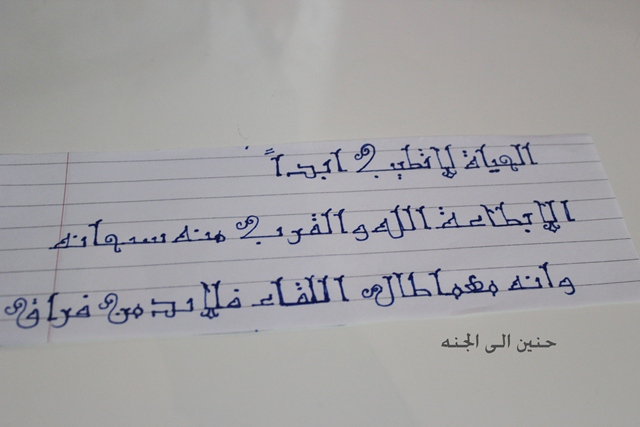 الحياة لا تطيب ابداً
الا بطاعة الله والقرب منه سبحانه
وانه مهما طال اللقاء فلابد من فراق
حنين الى الجنه